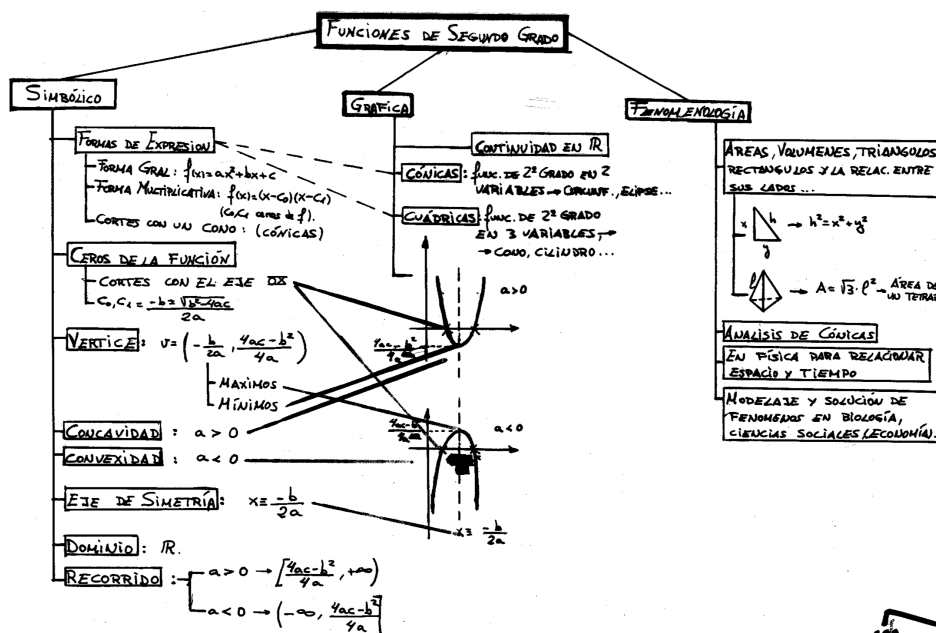 FUNCIONES DE SEGUNDO GRADO
SIMBÓLICO
FORMAS DE EXPRESION
FORMA GRAL: f(x)=ax²+bx+c
FORMA MULTIPLICATIVA: f(x)=(x-C₀)(x-C₁)
(C₀,C₁ ceros de f).
CORTES CON UN CONO: (CÓNICAS)
CEROS DE LA FUNCIÓN
CORTES CON EL EJE OX
C₀,C₁ = (-b±√(b²-4ac))/2a
VERTICE: v=(-b/2a, (4ac-b²)/4a)
MAXIMOS
MÍNIMOS
CONCAVIDAD: a>0
CONVEXIDAD: a<0
EJE DE SIMETRÍA: x≡ -b/2a
DOMINIO: ℝ.
RECORRIDO: a>0 → [(4ac-b²)/4a, +∞)
a<0 → (-∞, (4ac-b²)/4a]
GRAFICA
CONTINUIDAD EN ℝ
CÓNICAS: func. DE 2º GRADO EN 2
VARIABLES → CIRCUNF., ELIPSE...
CUÁDRICAS: func. DE 2º GRADO
EN 3 VARIABLES, →
→ CONO, CILINDRO...
a>0
(4ac-b²)/4a
a<0
(4ac-b²)/4a
x≡ -b/2a
FENOMENOLOGÍA
ÁREAS, VOLUMENES, TRIANGULOS
RECTANGULOS Y LA RELAC. ENTRE
SUS LADOS...
x h y → h²=x²+y²
l → A=√3·l² → ÁREA DE
UN TETRAE
ANALISIS DE CÓNICAS
EN FÍSICA PARA RELACIONAR
ESPACIO Y TIEMPO
MODELAJE Y SOLUCIÓN DE
FENOMENOS EN BIOLOGÍA,
CIENCIAS SOCIALES (ECONOMÍA).